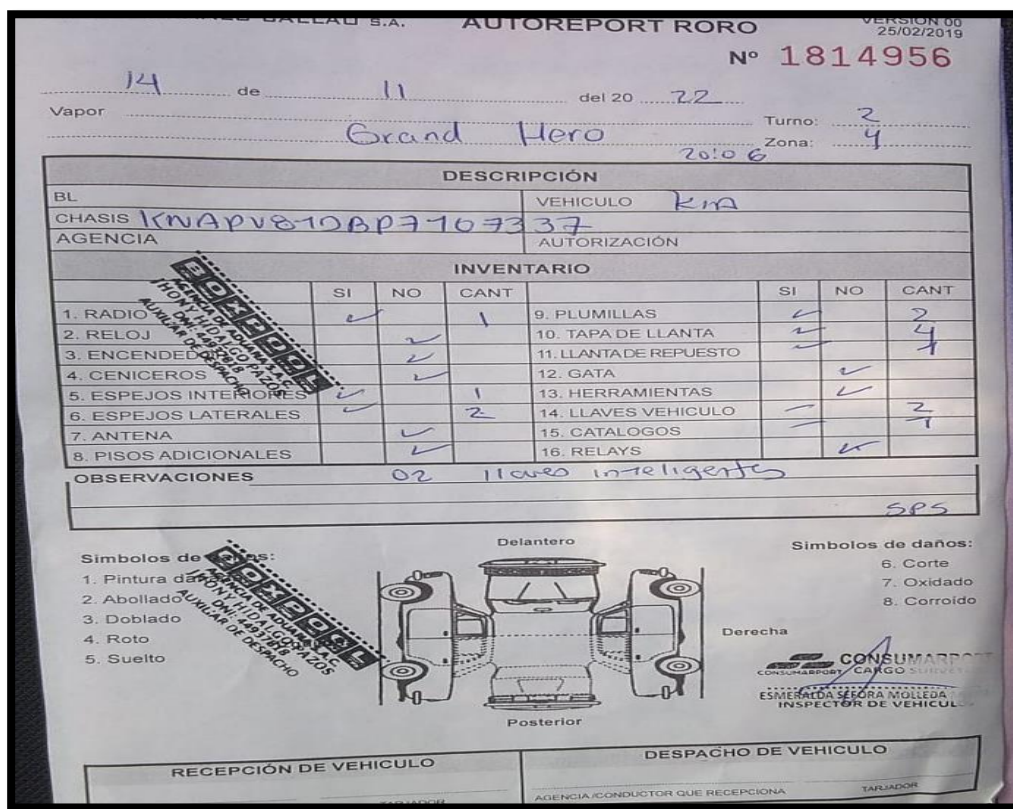 CALLAO S.A. AUTOREPORT RORO VERSION 00
25/02/2019
Nº 1814956
14 de 11 del 20 22
Vapor Grand Hero Turno: 2
20:06 Zona: 4
DESCRIPCIÓN
BL VEHICULO KIA
CHASIS KNAPV81DBP7107337
AGENCIA AUTORIZACIÓN
INVENTARIO
SI NO CANT SI NO CANT
1. RADIO ✓ 1 9. PLUMILLAS ✓ 2
2. RELOJ ✓ 10. TAPA DE LLANTA ✓ 4
3. ENCENDEDO ✓ 11. LLANTA DE REPUESTO ✓ 1
4. CENICEROS ✓ 12. GATA ✓
5. ESPEJOS INTERIORES ✓ 1 13. HERRAMIENTAS ✓
6. ESPEJOS LATERALES ✓ 2 14. LLAVES VEHICULO ✓ 2
7. ANTENA ✓ 15. CATALOGOS ✓ 1
8. PISOS ADICIONALES ✓ 16. RELAYS ✓
BOXPOOL
AGENCIA DE ADUANA S.A.C.
JHONY HIDALGO PAZOS
AUXILIAR DE DESPACHO
OBSERVACIONES 02 llaves inteligentes
SPS
Simbolos de
1. Pintura
2. Abollado
3. Doblado
4. Roto
5. Suelto
BOXPOOL
AGENCIA DE ADUANA S.A.C.
JHONY HIDALGO PAZOS
AUXILIAR DE DESPACHO
Delantero
Derecha
Posterior
Simbolos de daños:
6. Corte
7. Oxidado
8. Corroído
CONSUMARPORT
CONSUMARPORT CARGO
ESMERALDA SEFORA MOLLEDA
INSPECTOR DE VEHICUL
RECEPCIÓN DE VEHICULO DESPACHO DE VEHICULO
TARJADOR AGENCIA /CONDUCTOR QUE RECEPCIONA TARJADOR